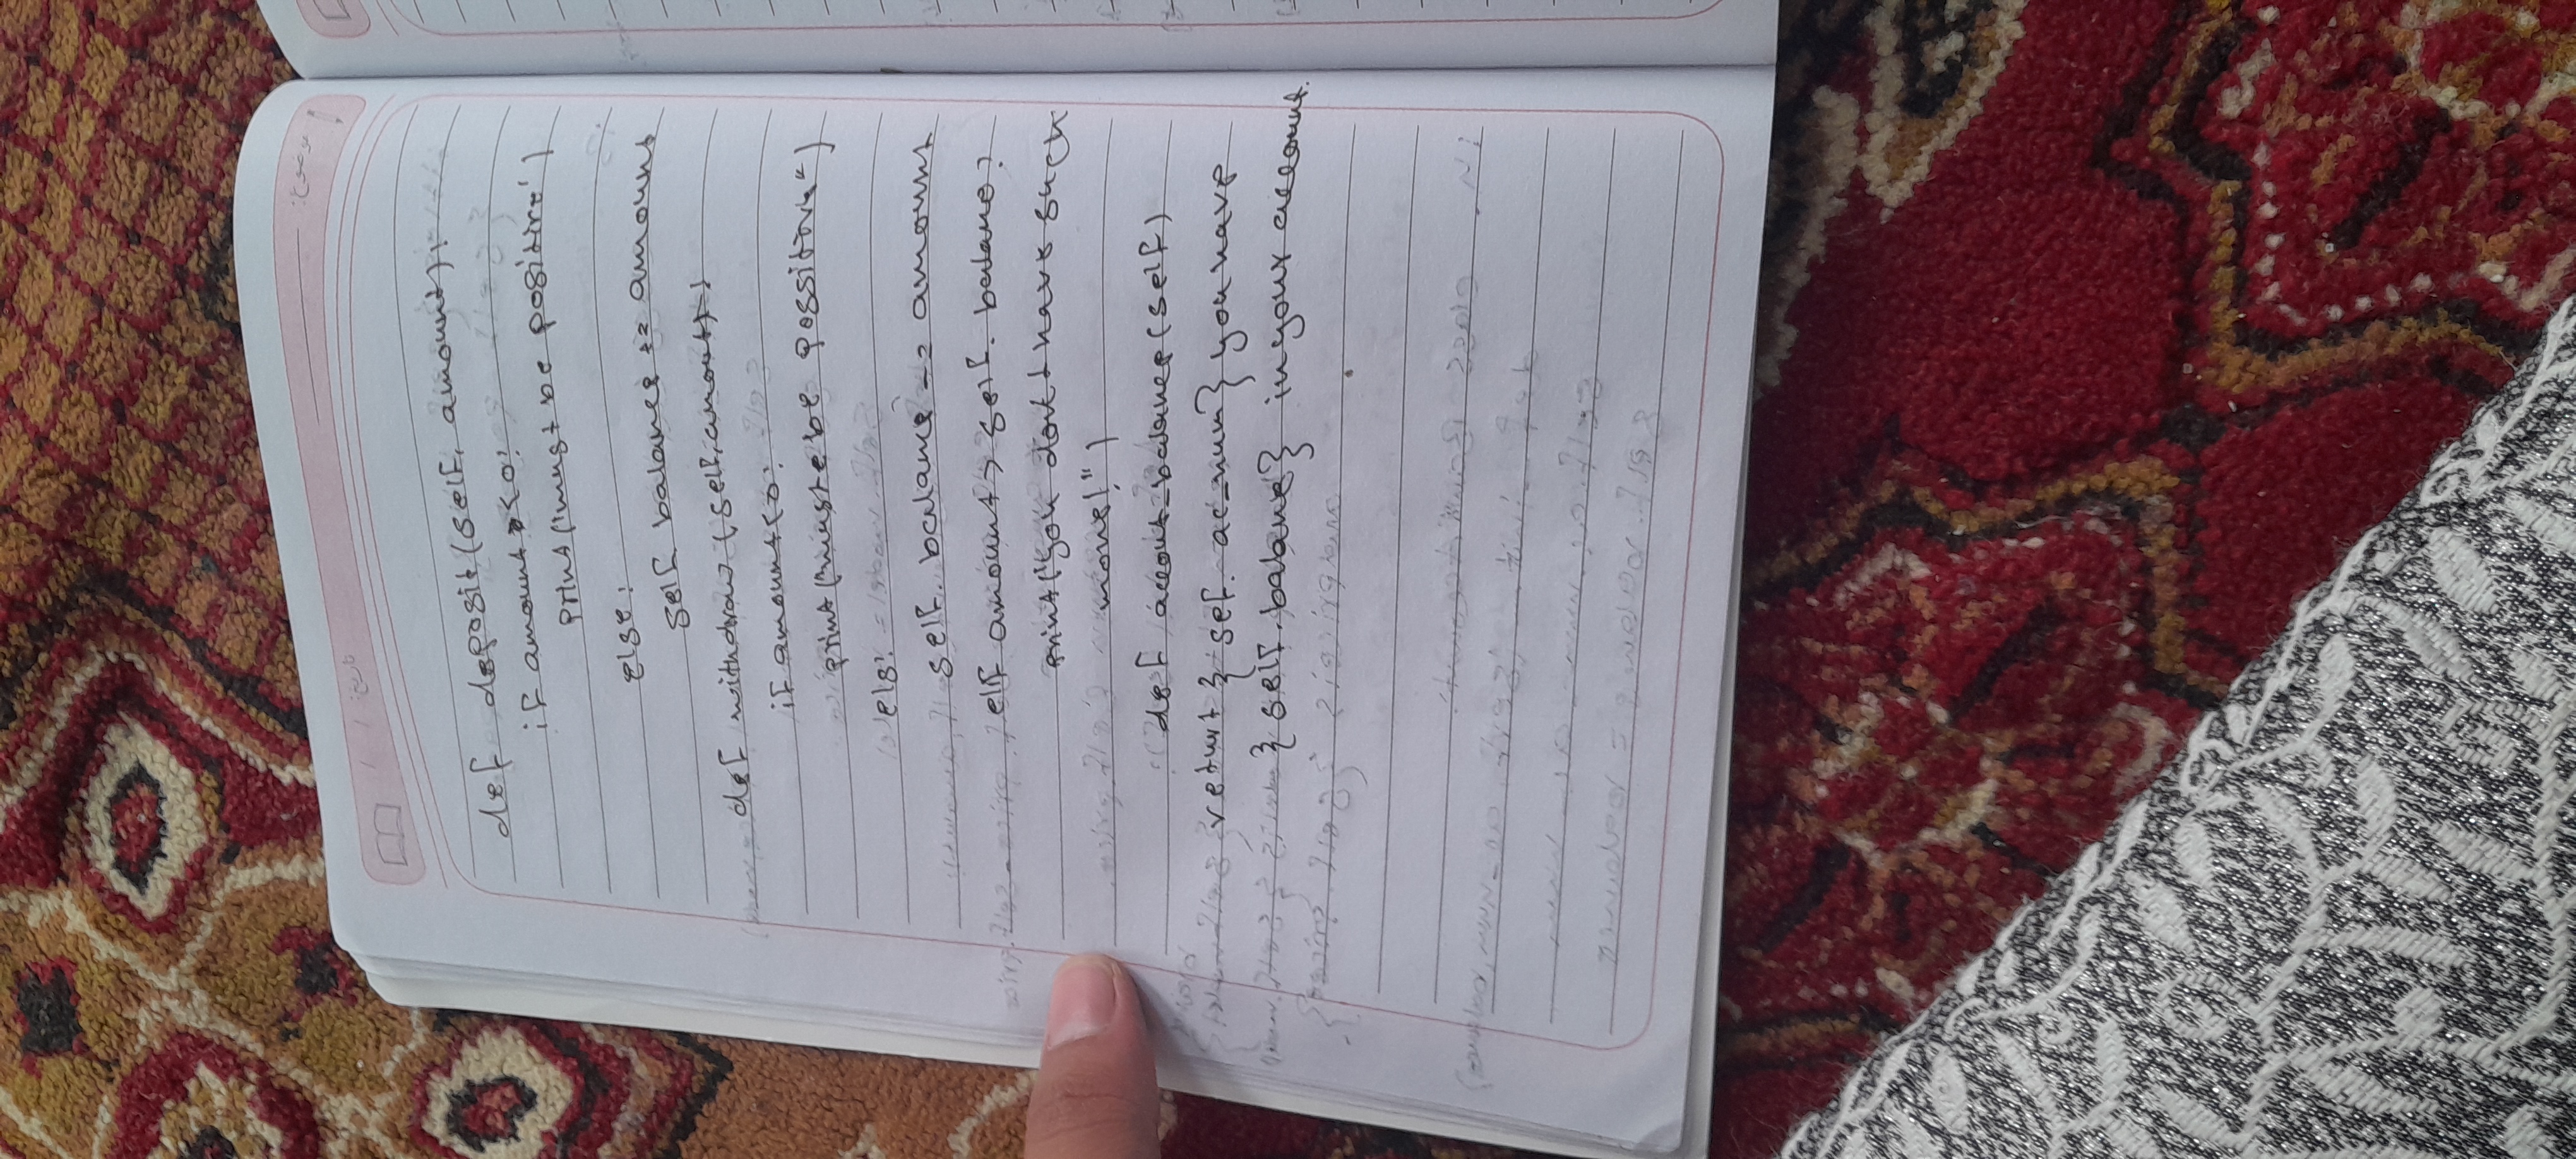 موضوع:
تاریخ: / /
def deposit(self, amount):
if amount < 0:
print("must be positive")
else:
self balance += amount
def withdraw (self, amout):
if amount<0:
print("muste be possitive")
els:
self. balance -= amount
elif amount > self. balane:
print("you don't have such
mone!")
def accout_balance(self)
return { sef. ac_num} you have
{ self.balane} in your account.